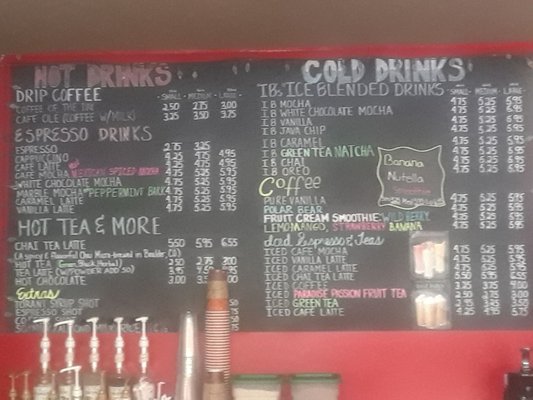 HOT DRINKS
DRIP COFFEE SMALL MEDIUM LARGE
COFFEE OF THE DAY 2.50 2.75 3.00
CAFE OLE (COFFEE W/MILK) 3.25 3.50 3.75
ESPRESSO DRINKS
ESPRESSO 2.75 3.25
CAPPUCCINO 4.25 4.75 4.95
CAFE LATTE 4.25
CAFE MOCHA MEXICAN SPICED MOCHA 4.75 5.25 5.95
WHITE CHOCOLATE MOCHA 4.75 5.25 5.95
MARBLE MOCHA PEPPERMINT BARK 4.75 5.25 5.95
CARAMEL LATTE 4.75 5.25 5.95
VANILLA LATTE 4.75 5.25 5.95
HOT TEA & MORE
CHAI TEA LATTE 5.50 5.95 6.55
HOT TEA (Green, Black, Herbal) 2.50 2.75 3.00
TEA LATTE 3.95
HOT CHOCOLATE 3.00
Extras
TORANI SYRUP SHOT
ESPRESSO SHOT
COLD DRINKS
IB's ICE BLENDED DRINKS SMALL MEDIUM LARGE
IB MOCHA 4.75 5.25 5.95
IB WHITE CHOCOLATE MOCHA 4.75 5.25 5.95
IB VANILLA 4.75 5.25 5.95
IB JAVA CHIP 4.75 5.25 5.95
IB CARAMEL 4.75 5.25 5.95
IB GREEN TEA MATCHA 4.75 5.25 5.95
IB CHAI 4.75 5.25 5.95
IB OREO 4.75 5.25 5.95
Banana
Nutella
Smoothie
Coffee
PURE VANILLA 4.75 5.25 5.95
POLAR BEAR 4.75 5.25 5.95
FRUIT CREAM SMOOTHIE: WILD BERRY, 4.75 5.25 5.95
LEMON MANGO, STRAWBERRY BANANA 4.75 5.25 5.95
Iced Espresso & Teas
ICED CAFE MOCHA 4.75 5.25 5.95
ICED VANILLA LATTE 4.75 5.25 5.95
ICED CARAMEL LATTE 4.75 5.25 5.95
ICED CHAI TEA LATTE 5.50 5.95 6.55
ICED COFFEE 3.25 3.75 4.00
ICED PARADISE PASSION FRUIT TEA 2.50 2.75 3.00
ICED GREEN TEA 2.50 2.75 3.00
ICED CAFE LATTE 4.25 4.95 5.75